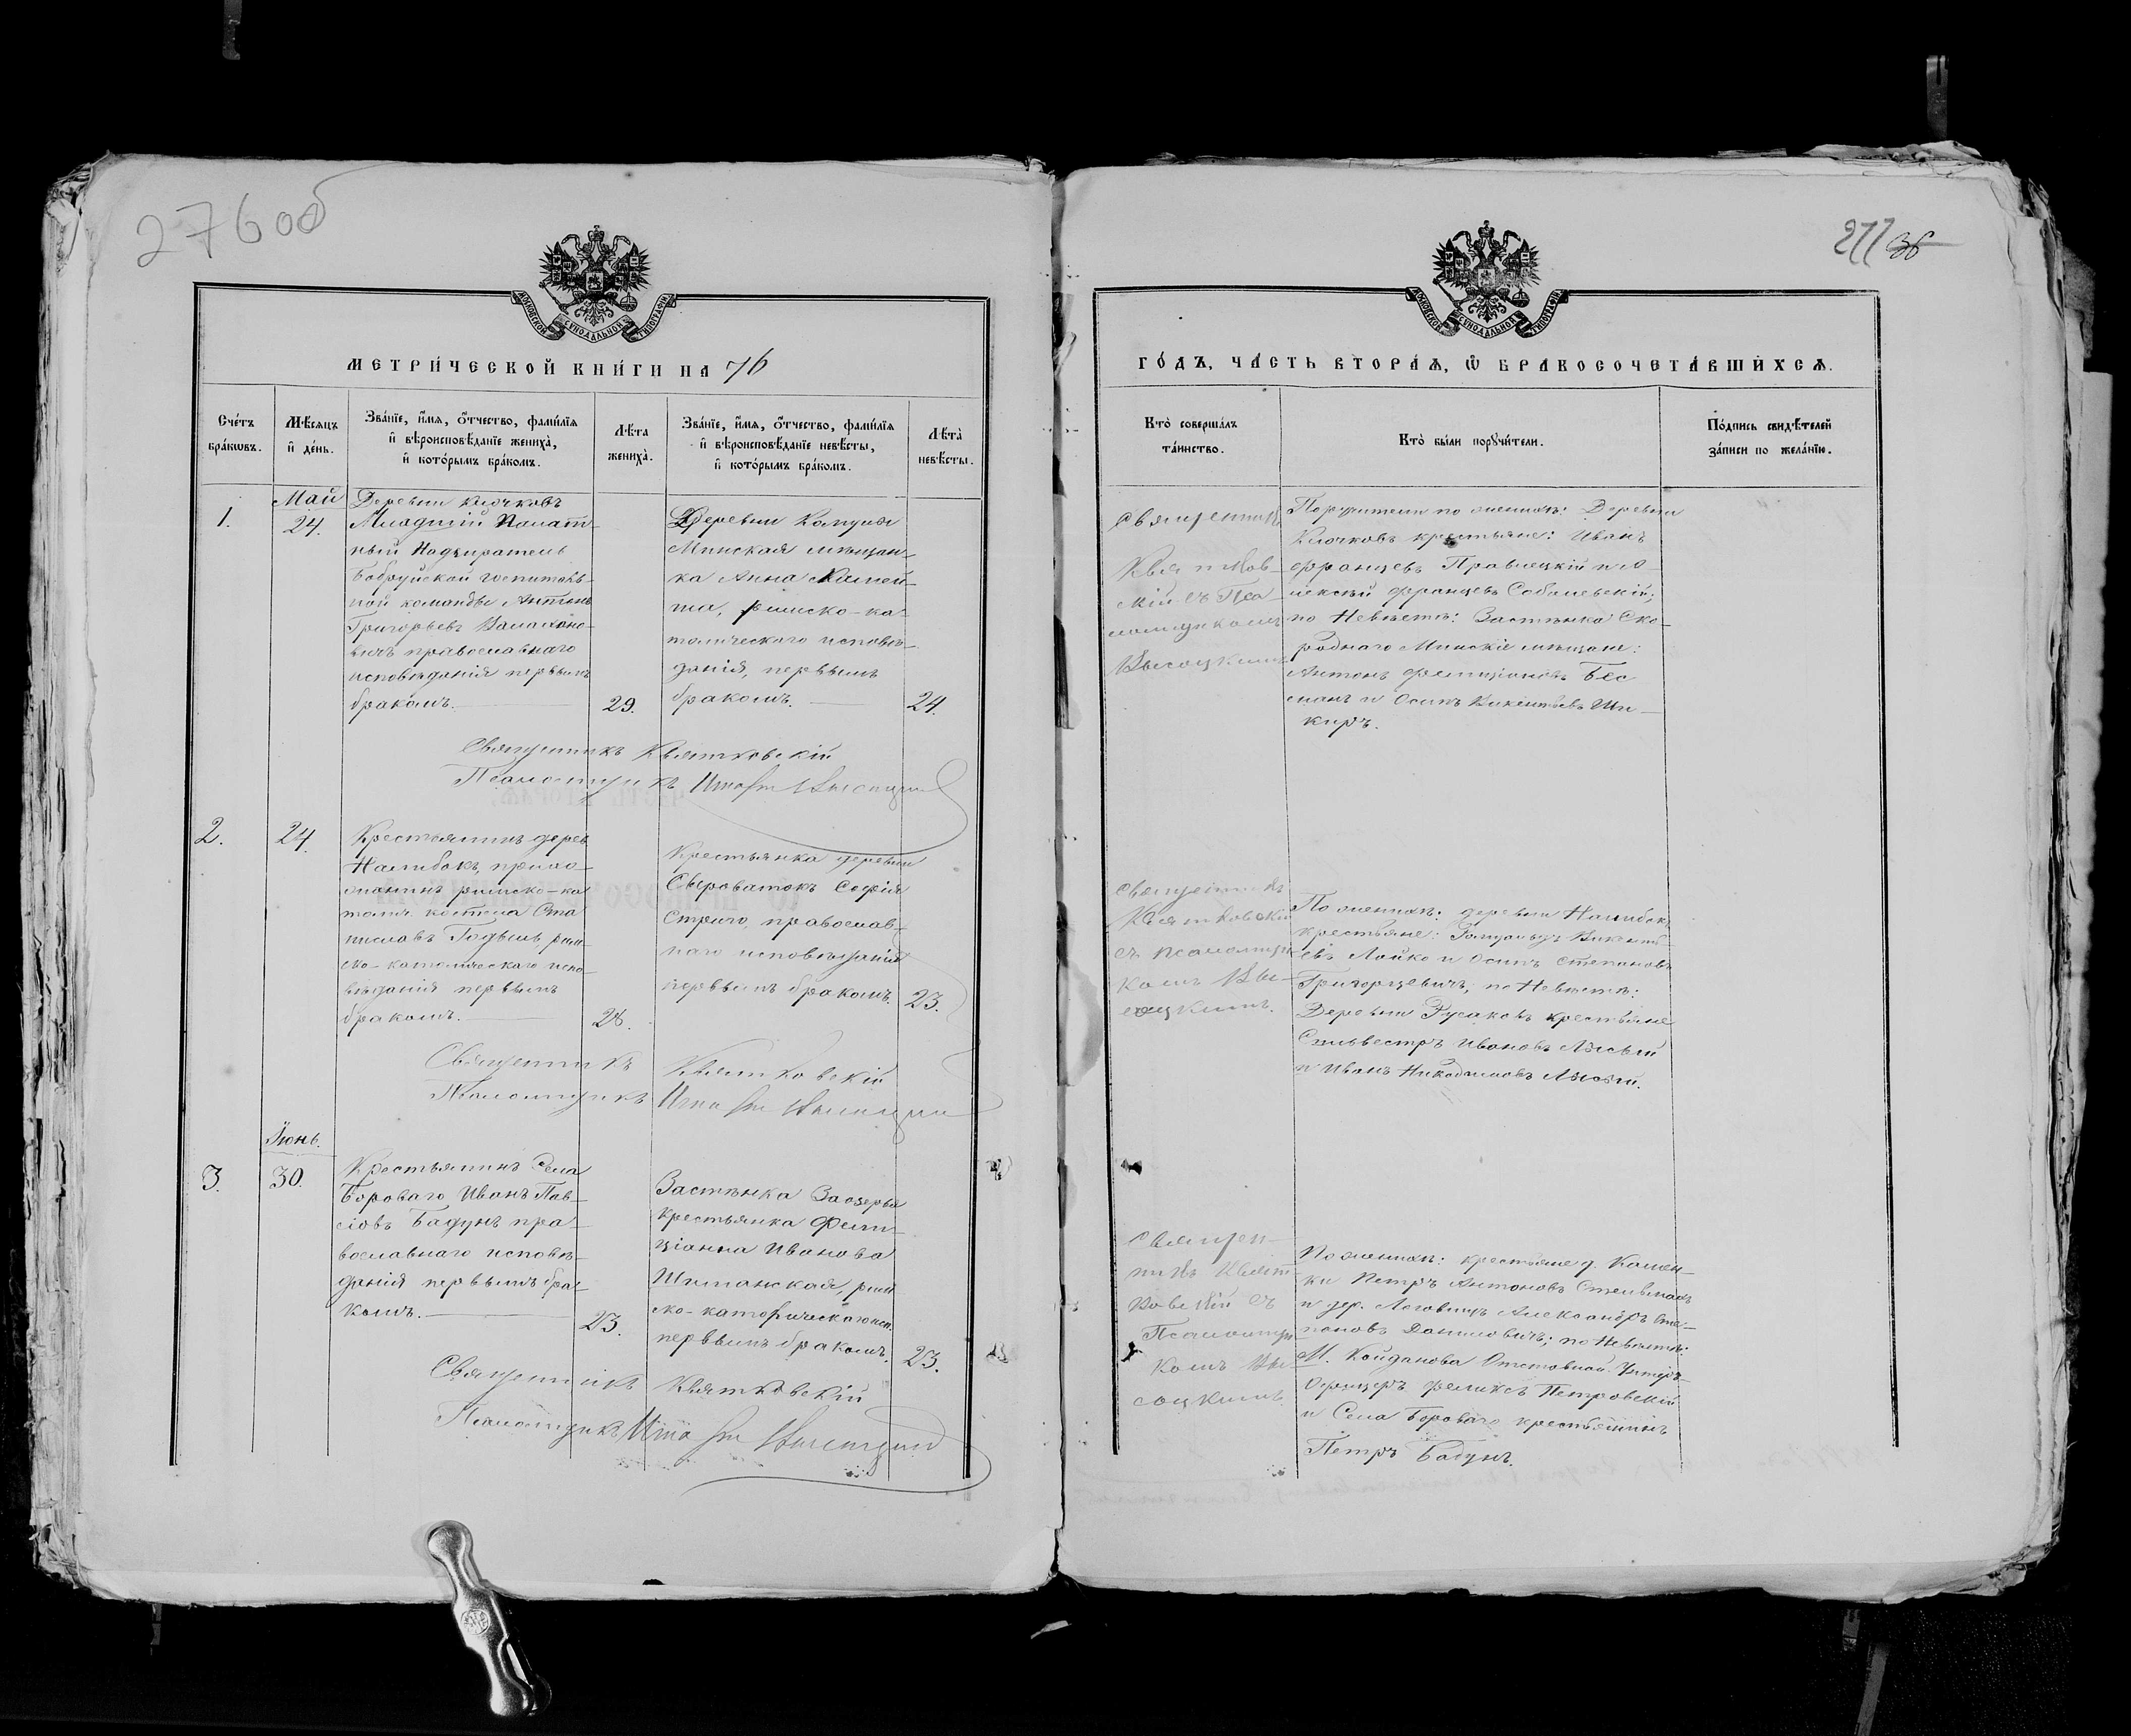 276об
МОСКОВСКОЙ СѴНОДАЛЬНОЙ ТИПОГРАФІИ
МЕТРИ́ЧЕСКОЙ КНИ́ГИ НА 76
Сче́тъ бра́кѡвъ.
Мѣ́сяцъ и҆ де́нь.
Зва́нїе, и҆́мѧ, ѻ҆́тчество, фами́лїѧ
и҆ вѣроисповѣ́данїе жениха̀,
и҆ кото́рымъ бра́комъ.
Лѣ́та жениха̀.
Зва́нїе, и҆́мѧ, ѻ҆́тчество, фами́лїѧ
и҆ вѣроисповѣ́данїе невѣ́сты,
и҆ кото́рымъ бра́комъ.
Лѣ́та невѣ́сты.
1.
Май
24.
Деревни Клочковъ
Младшій Палат-
ный Надзиратель
Бобруйской госпиталь-
ной команды Антонъ
Григорьевъ
вичъ православнаго
исповѣданія первымъ
бракомъ.
29.
Деревни
Минская мѣщан-
ка Анна
римско-ка-
толическаго исповѣ-
данія, первымъ
бракомъ.
24.
Священникъ Квятковскій
Псаломщикъ Высоцкій
2.
24.
Крестьянинъ дерев.
Налибокъ, прихо-
жанинъ римско-ка-
толич. костела Ста-
ниславъ рим-
ско-католическаго испо-
вѣданія первымъ
бракомъ.
28.
Крестьянка деревни
Сыроватокъ Софія
православ-
наго исповѣданія
первымъ бракомъ.
23.
Священникъ Квятковскій
Псаломщикъ Высоцкій
Іюнь.
3.
30.
Крестьянинъ Села
Бороваго Иванъ Пав-
ловъ Бадунъ пра-
вославнаго исповѣ-
данія первымъ бра-
комъ.
23.
Застѣнка Заозерья
Крестьянка Фели-
ціанна Иванова
Шиманская, рим-
ско-католическаго исп.
первымъ бракомъ.
23.
Священникъ Квятковскій
Псаломщикъ Высоцкій
277 36
МОСКОВСКОЙ СѴНОДАЛЬНОЙ ТИПОГРАФІИ
ГО́ДЪ, ЧА́СТЬ ВТОРА́Ѧ, Ѡ҆ БРАКОСОЧЕТА́ВШИХСѦ.
Кто̀ соверша́лъ
та́инство.
Кто̀ бы́ли порꙋчи́тели.
По́дпись свидѣ́телей
за́писи по жела́нїю.
Священникъ
Квятков-
скій съ Пса-
ломщикомъ
Высоцкимъ
Поручители по женихѣ: Деревни
Клочковъ крестьяне: Иванъ
Францевъ и А-
лексѣй Францевъ Соболевскій;
по Невѣстѣ: Застѣнка Ско-
роднаго Минскіе мѣщане:
Антонъ
и Осипъ Викентьевъ Ши-
киръ.
Священникъ
Квятковскій
съ псаломщи-
комъ Вы-
соцкимъ.
По женихѣ: деревни Налибокъ
крестьяне: Викенть-
евъ Лойко и Осипъ Степановъ
Григорцевичъ; по Невѣстѣ:
Деревни Русаковъ крестьяне
Сильвестръ Ивановъ Лысый
и Иванъ Никодимовъ Лысый.
Священ-
никъ Квят-
ковскій съ
Псаломщи-
комъ Вы-
соцкимъ.
По женихѣ: крестьяне д. Камен-
ки Петръ Антоновъ Стельмахъ
и дер. Логовищъ Александръ Сте-
пановъ Даниловичъ; по Невѣстѣ:
М. Койданова Отставной Унтеръ-
Офицеръ Феликсъ Петровскій
и Села Бороваго крестьянинъ
Петръ Бадунъ.